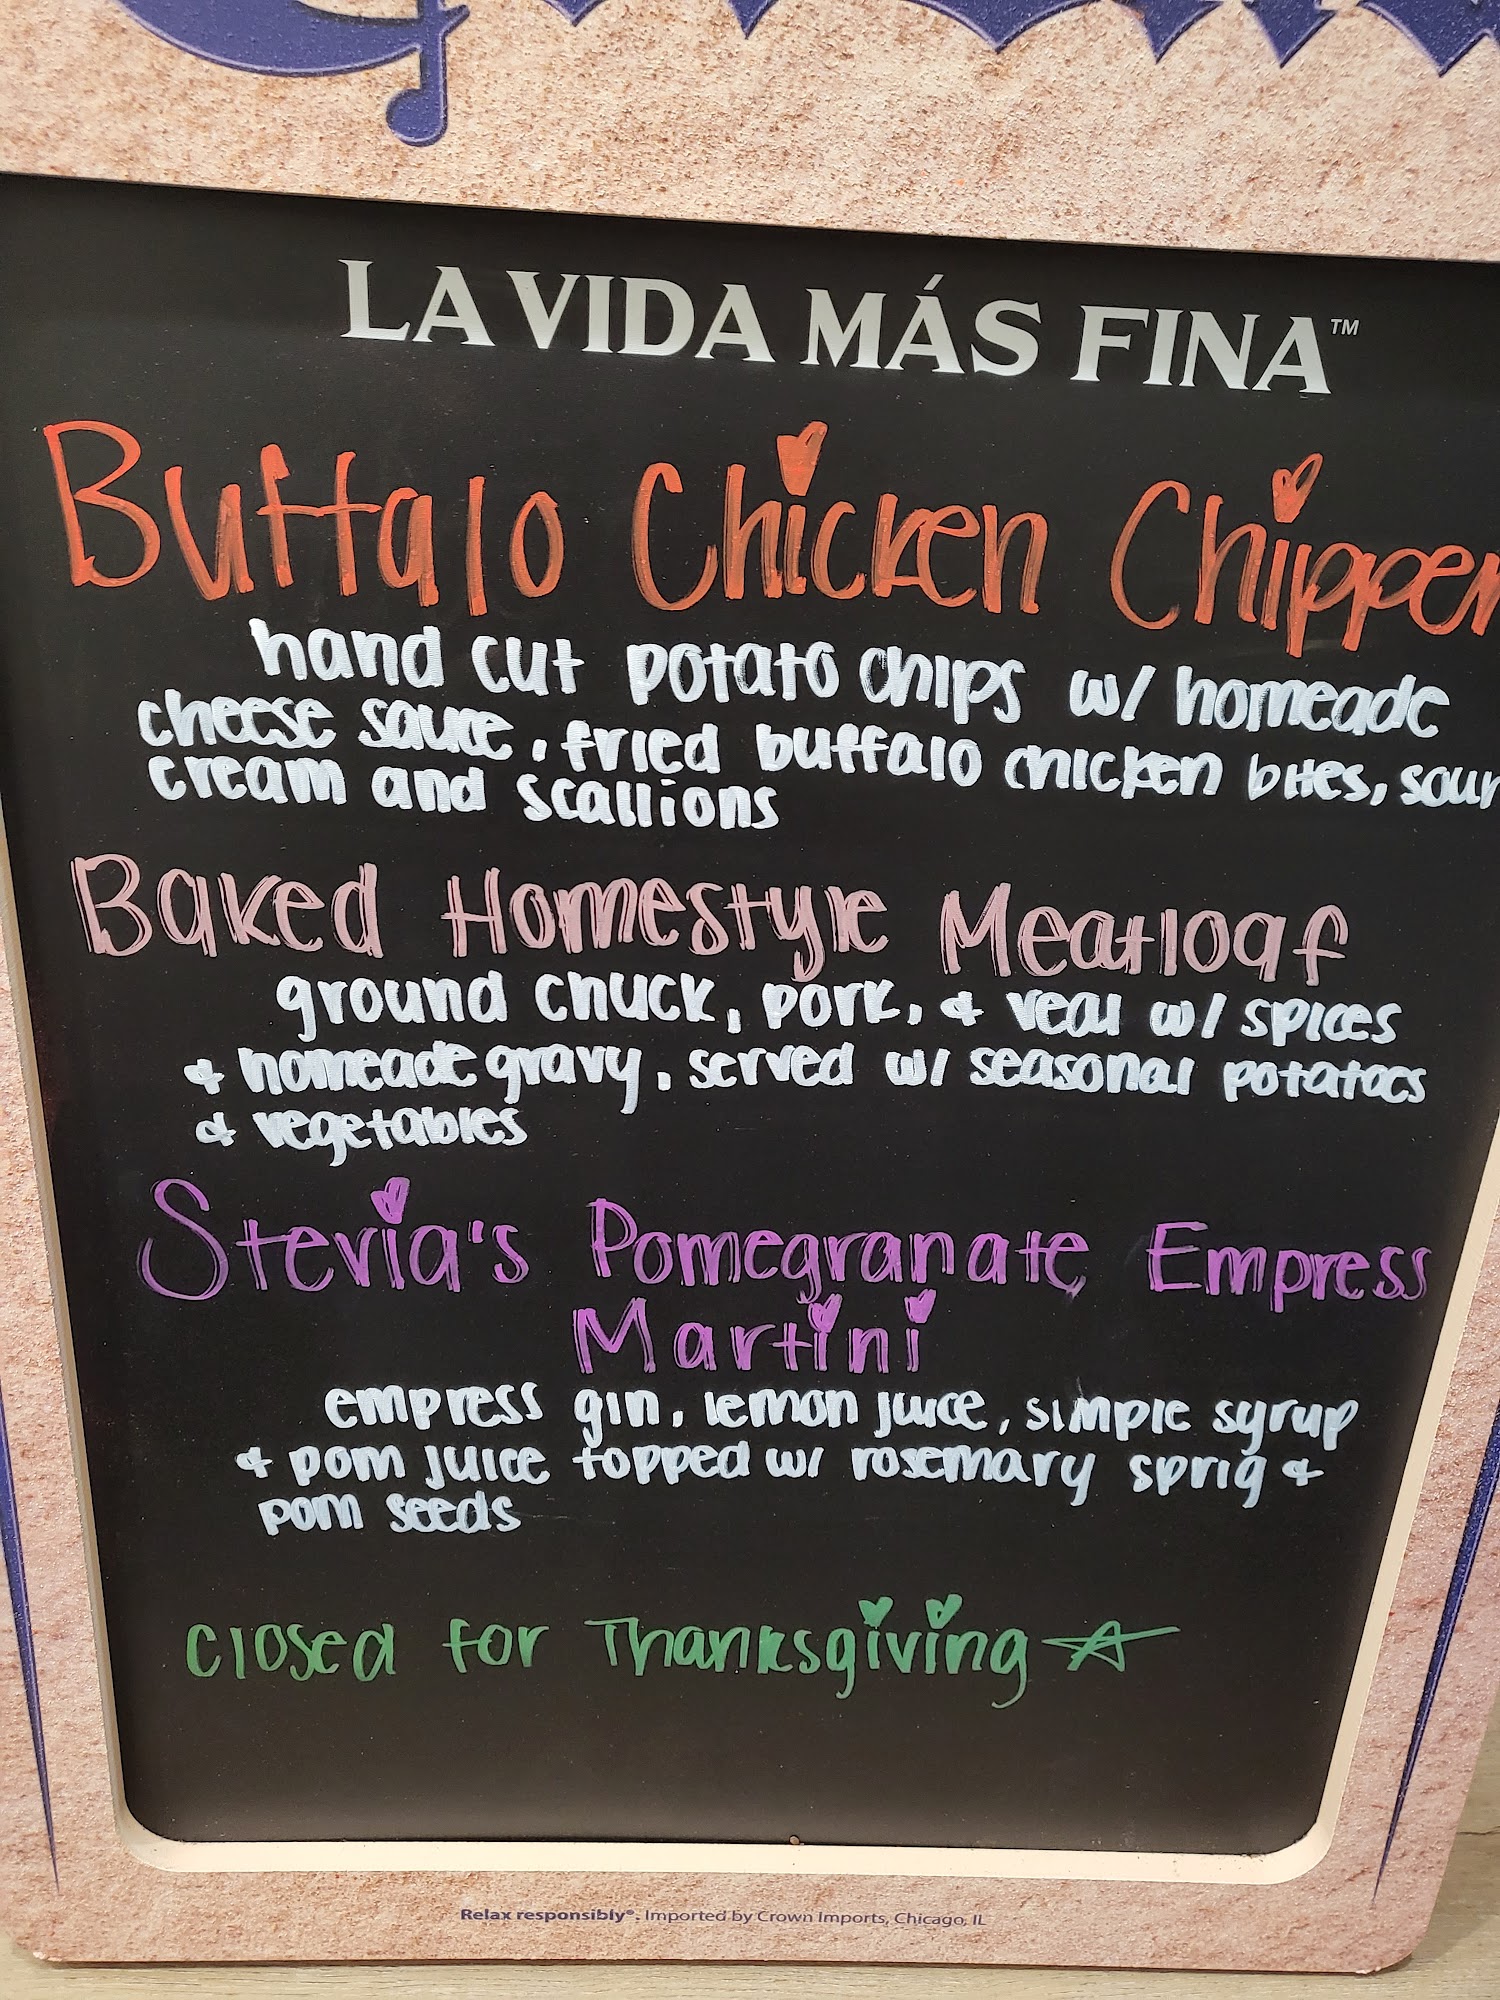 LA VIDA MÁS FINA™
Buffalo Chicken Chipper
hand cut potato chips w/ homeade
cheese sauce, fried buffalo chicken bites, sour
cream and scallions
Baked Homestyle Meatloaf
ground chuck, pork, & veal w/ spices
& homeade gravy, served w/ seasonal potatoes
& vegetables
Stevia's Pomegranate Empress
Martini
empress gin, lemon juice, simple syrup
& pom juice topped w/ rosemary sprig &
pom seeds
closed for Thanksgiving
Relax responsibly®. Imported by Crown Imports, Chicago, IL